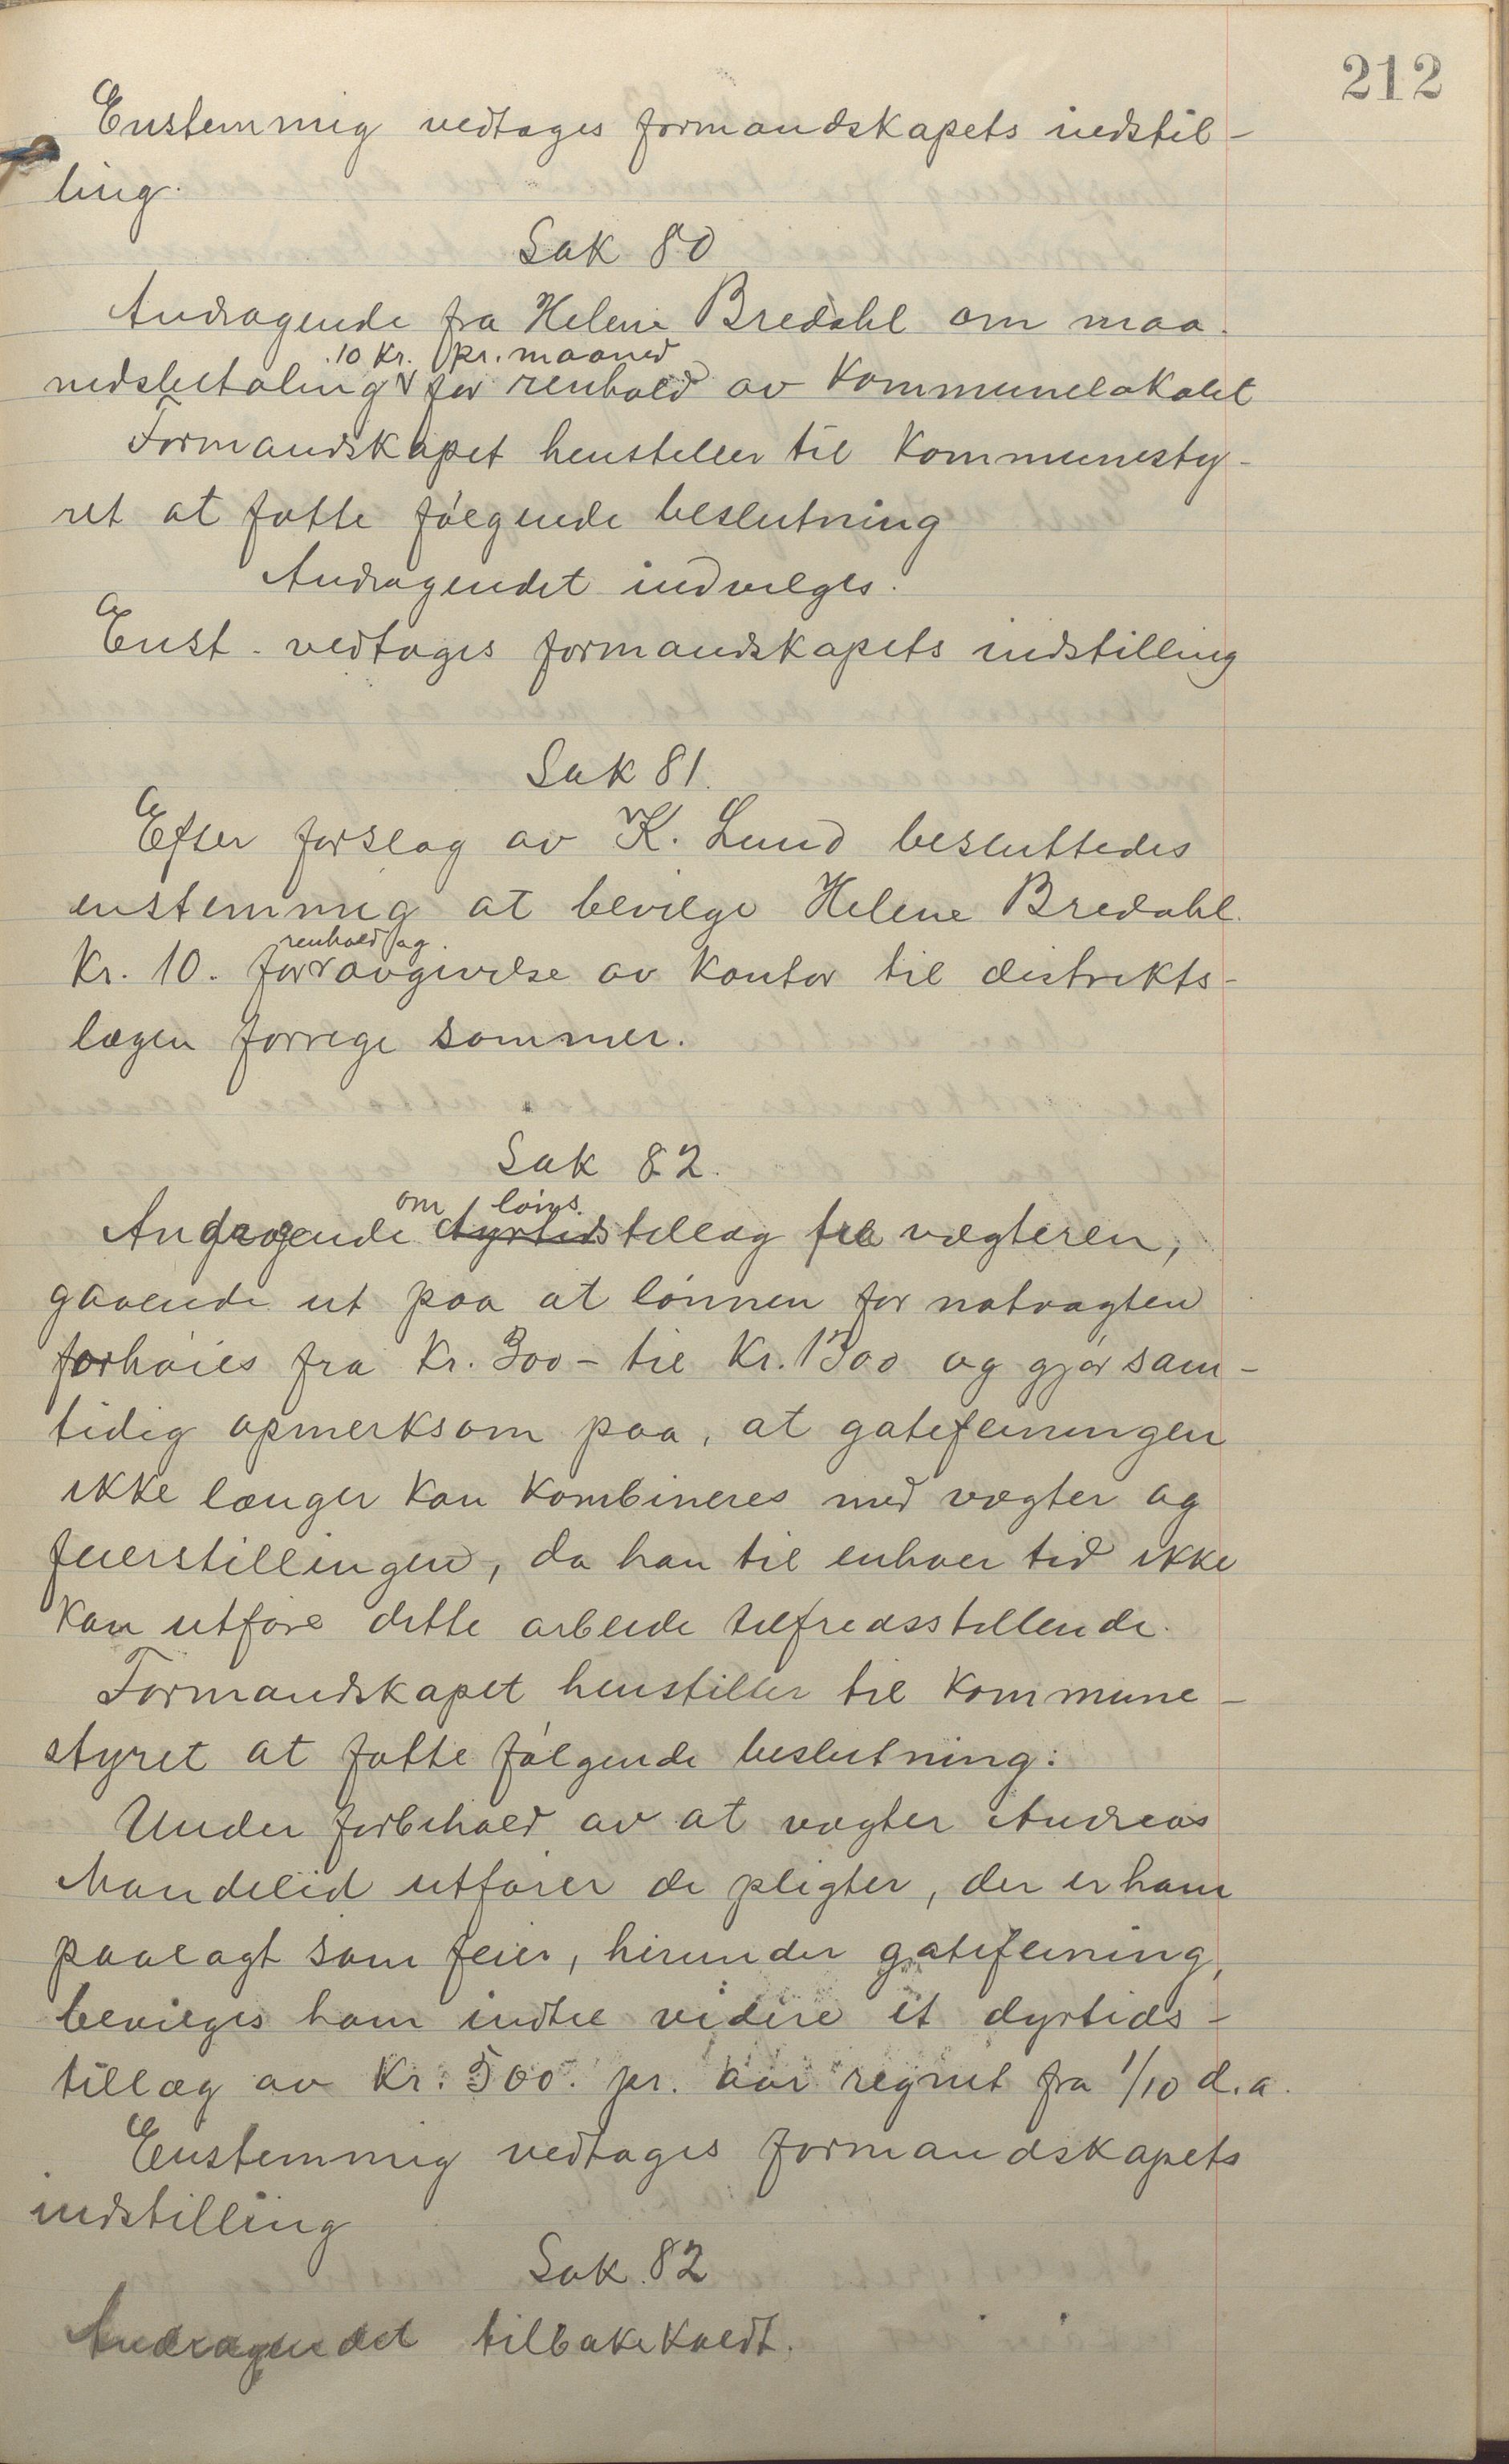 212
Enstemmig vedtages formandskapets indstil-
ling.
Sak 80
Andragende fra Helene Bredahl om maa-
10 Kr. pr. maaned
nedsbetaling for renhold av Kommunelokalet
Formandskapet henstiller til Kommunesty-
ret at fatte følgende beslutning
Andragendet indvilges.
Enst. vedtages formandskapets indstilling
Sak 81.
Efter forslag av K. Lund besluttedes
enstemmig at bevilge Helene Bredahl
renhold og
Kr. 10. for avgivelse av Kontor til distrikts-
lægen forrige sommer.
Sak 82.
om løns
Andragende dyrtidstillæg fra vægteren,
gaaende ut paa at lønnen for natvagten
forhøies fra Kr. 300 - til Kr. 1300 og gjør sam-
tidig opmerksom paa, at gatefeiningen
ikke længer Kan Kombineres med vægter og
feierstillingen, da han til enhver tid ikke
Kan utføre dette arbeide tilfredsstillende.
Formandskapet henstiller til Kommune-
styret at fatte følgende beslutning:
Under forbehold av at vægter Andreas
Mandelid utfører de pligter, der er ham
paalagt som feier, herunder gatefeining,
bevilges ham indtil videre et dyrtids-
tillæg av Kr. 500. pr. aar regnet fra 1/10 d.a.
Enstemmig vedtages formandskapets
indstilling
Sak. 82
Andragendet tilbakekaldt.